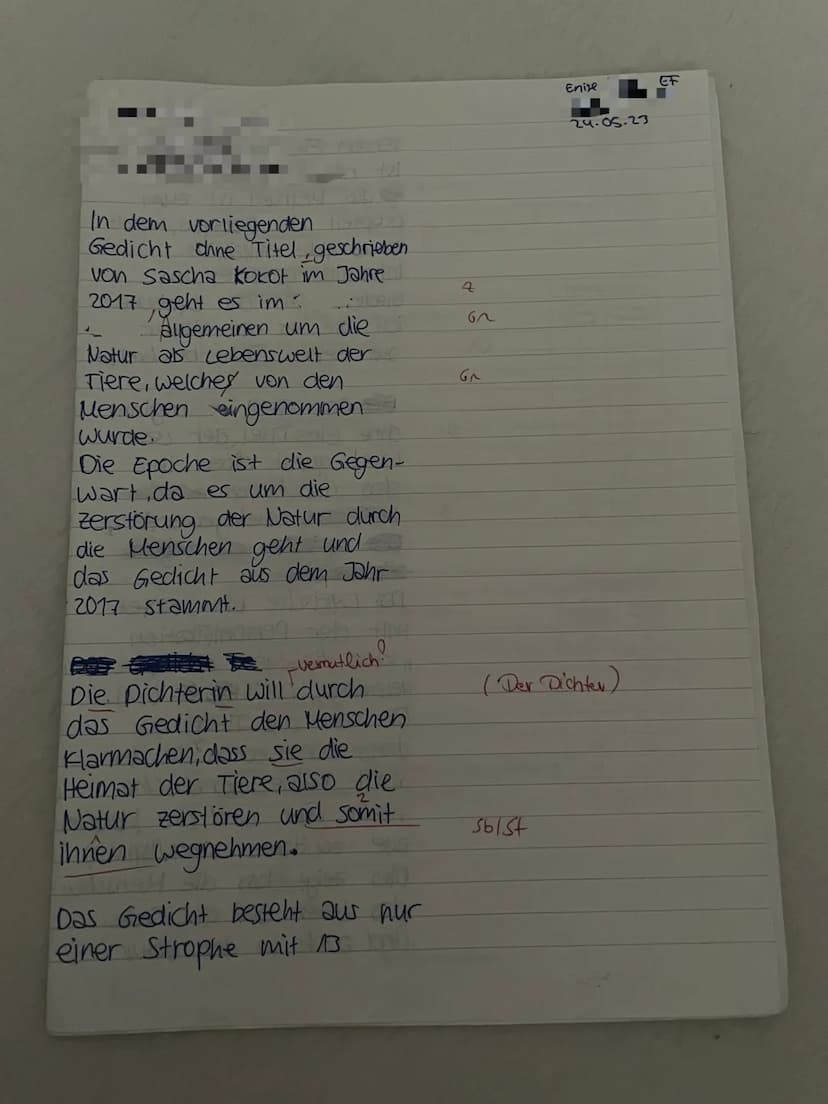 Enise EF
24.05.23
In dem vorliegenden
Gedicht ohne Titel, geschrieben
von Sascha Kokot im Jahre
2017, geht es im Z
allgemeinen um die Gr
Natur als Lebenswelt der
Tiere, welches von den Gr
Menschen eingenommen
wurde.
Die Epoche ist die Gegen-
wart, da es um die
Zerstörung der Natur durch
die Menschen geht und
das Gedicht aus dem Jahr
2017 stammt.
vermutlich?
Die Dichterin will durch (Der Dichter)
das Gedicht den Menschen
klarmachen, dass sie die
Heimat der Tiere, also die
Natur zerstören und somit Sb/St
ihnen wegnehmen.
Das Gedicht besteht aus nur
einer Strophe mit 13